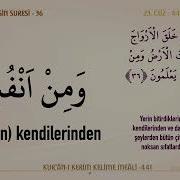 SİN SURESİ - 36
23. CÜZ - 44
خَلَقَ الْاَزْوَاجَ
الْاَرْضُ وَمِنْ
يَعْلَمُونَ ﴿٣٦﴾
وَمِنْ اَنْفُ
n) kendilerinden
Yerin bitirdiklerind
kendilerinden ve da
şeylerden bütün çi
noksan sıfatlard
KUR'ÂN-I KERİM KELİME MEÂLİ -441